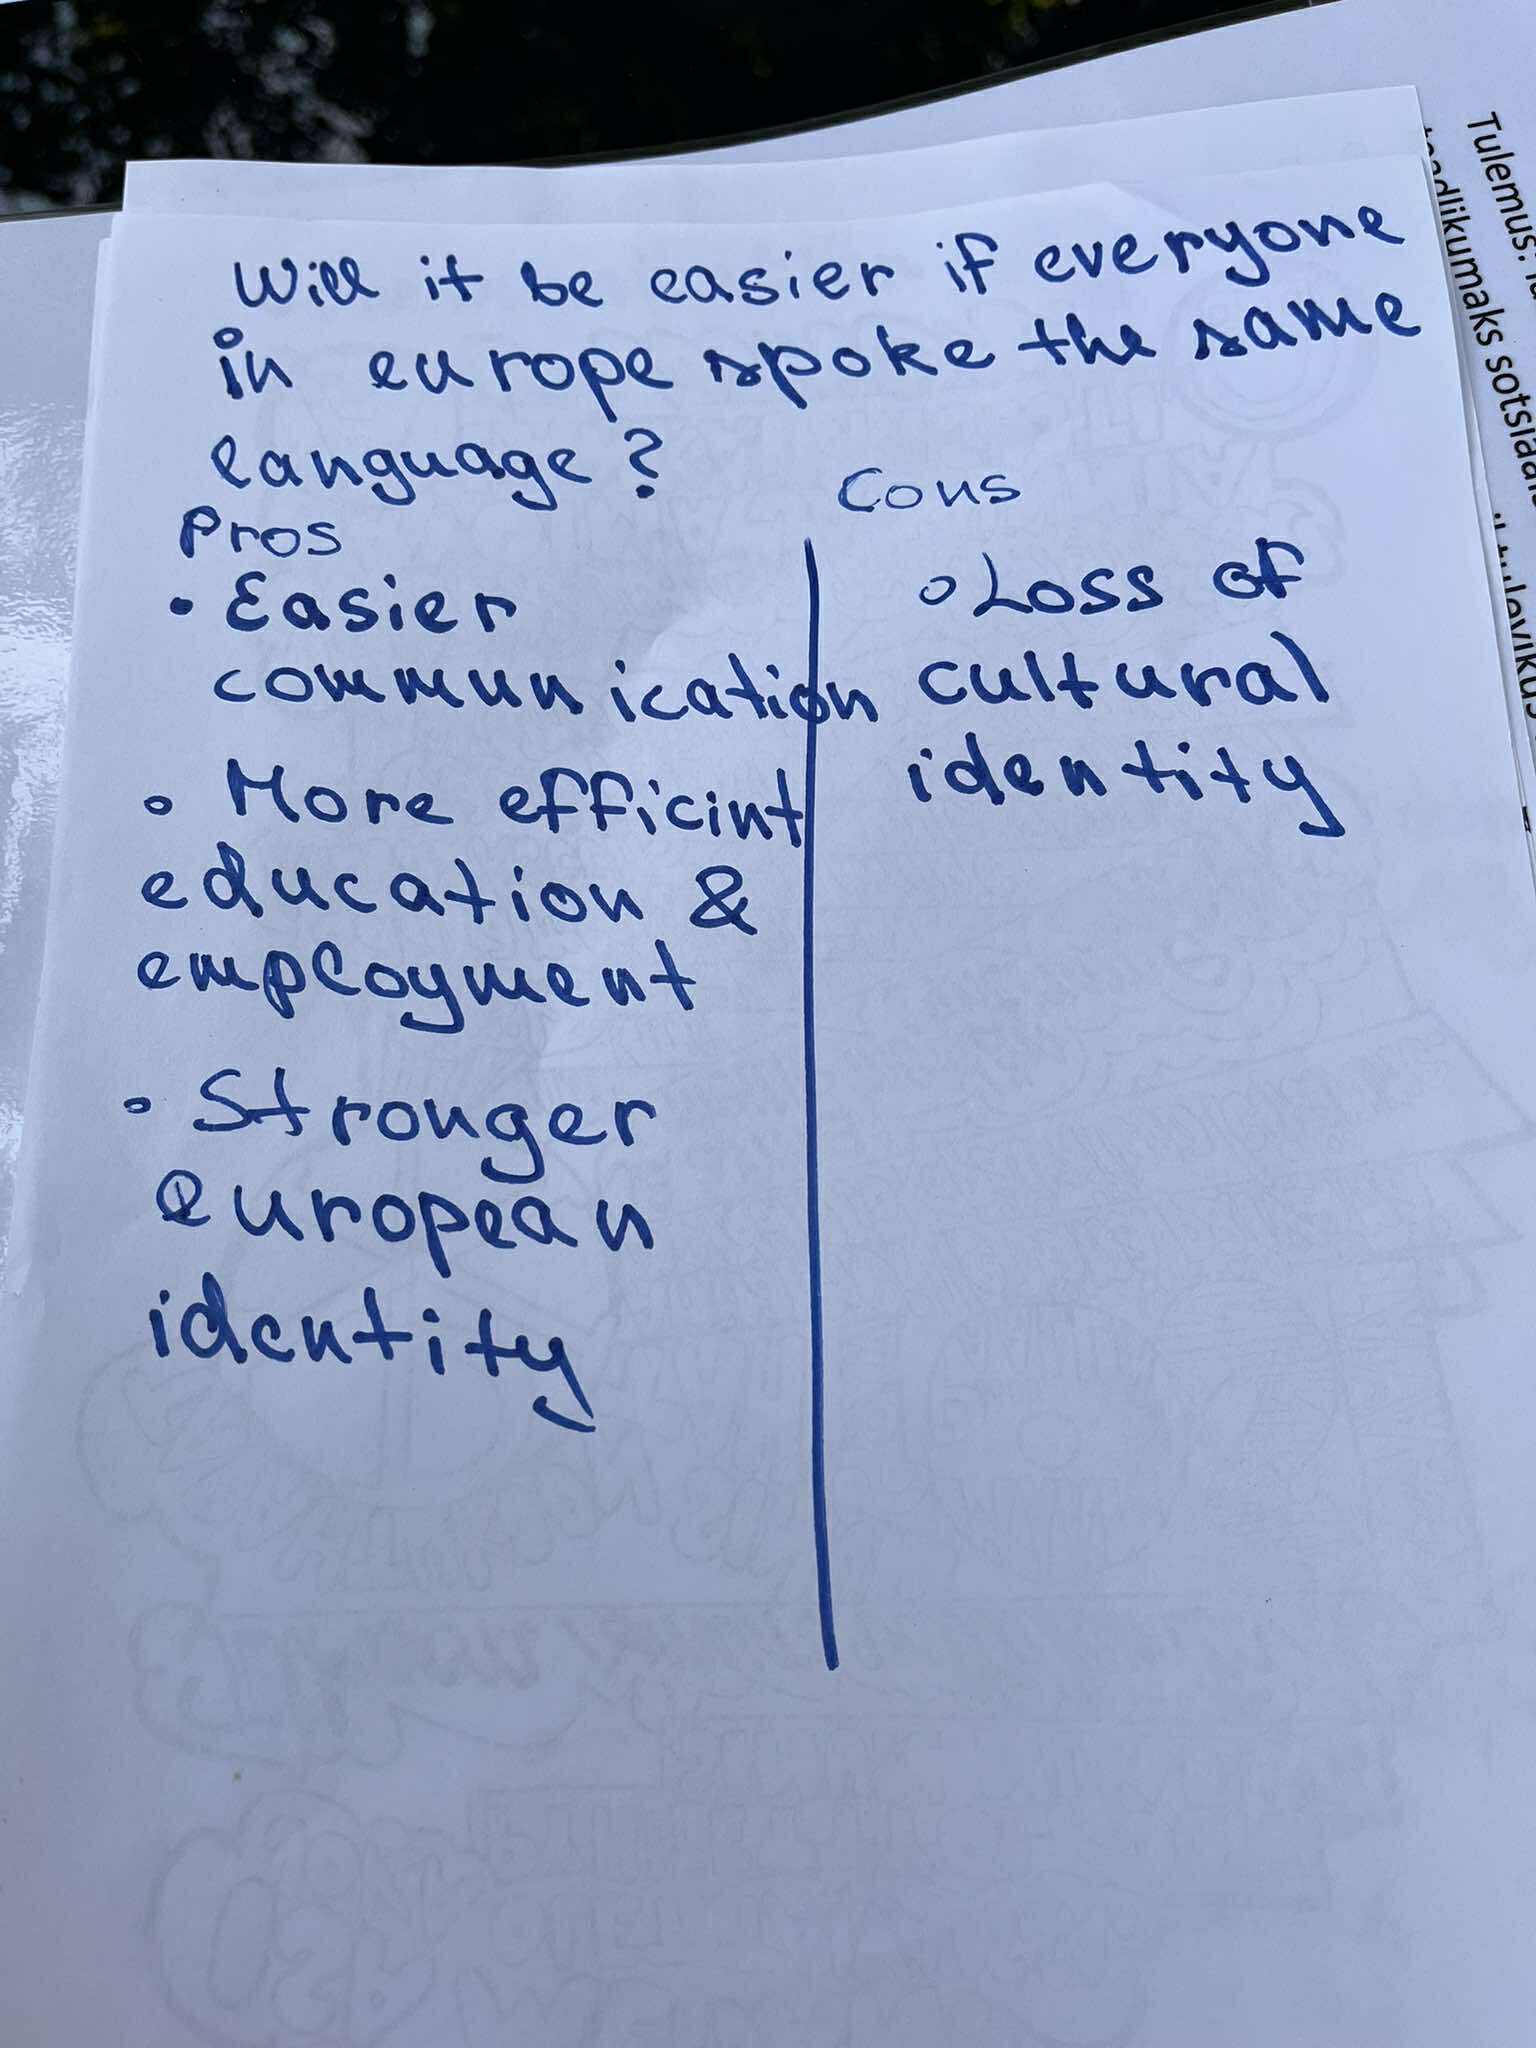 Will it be easier if everyone
in europe spoke the same
language?
Pros
• Easier
communication
• More efficint
education &
employment
• Stronger
european
identity
Cons
• Loss of
cultural
identity
Tulemus:
sotsiaal